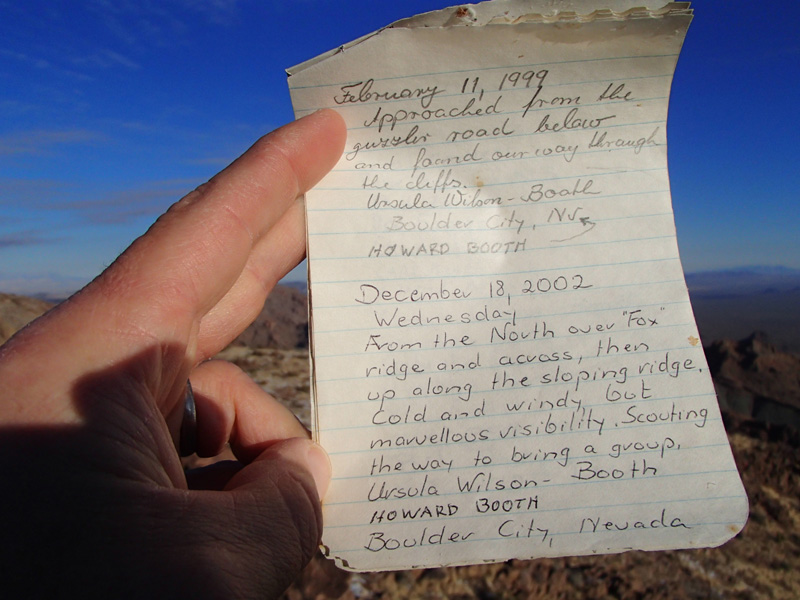 February 11, 1999
Approached from the
guzzler road below
and found our way through
the cliffs.
Ursula Wilson-Booth
Boulder City, NV
HOWARD BOOTH
December 18, 2002
Wednesday
From the North over "Fox"
ridge and across, then
up along the sloping ridge.
Cold and windy, but
marvellous visibility. Scouting
the way to bring a group.
Ursula Wilson-Booth
HOWARD BOOTH
Boulder City, Nevada